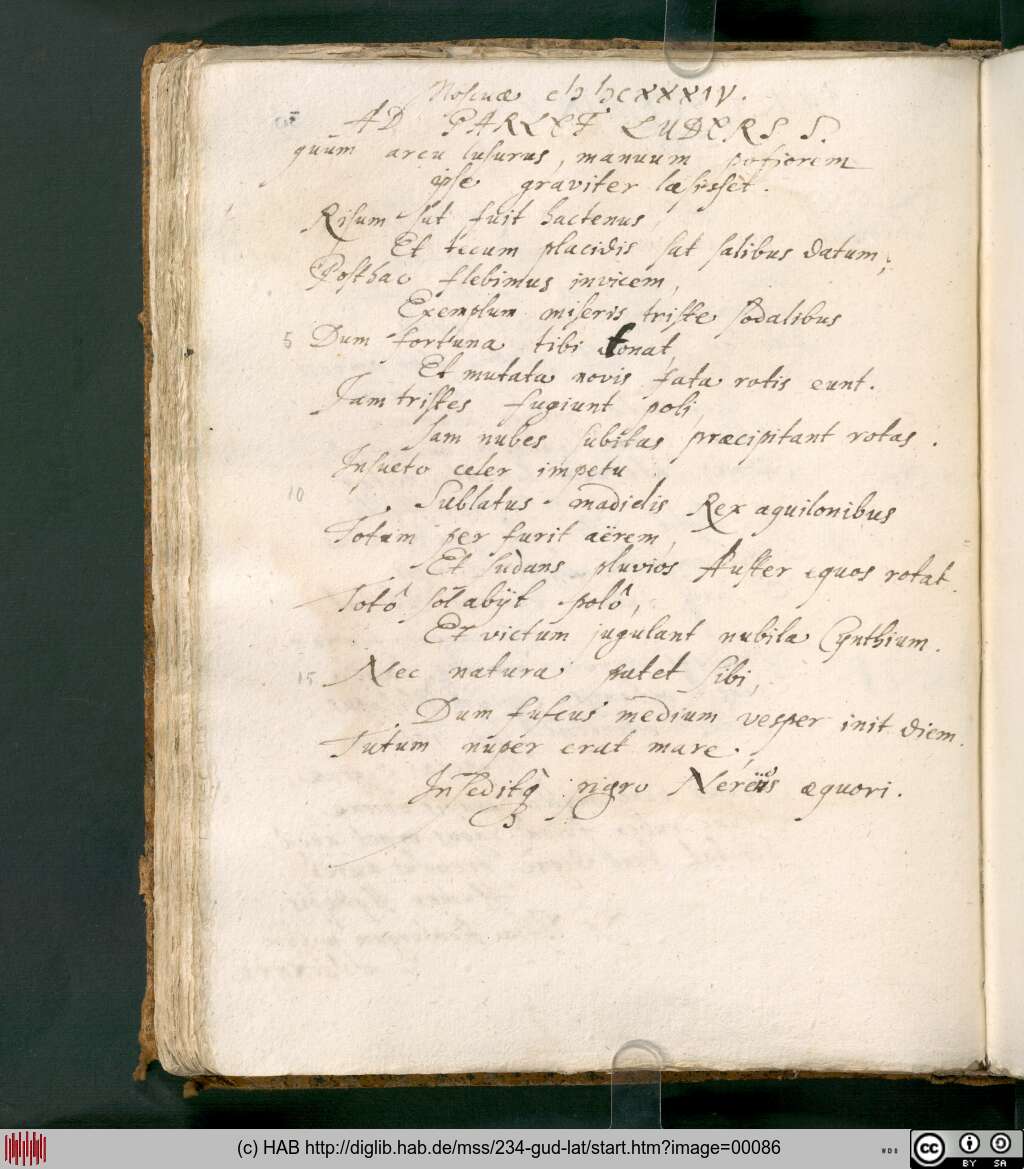 Moscuæ cIɔ Iɔ CXXXIV.
AD
LUDERS S.
quum arcu lusurus, manuum
ipse graviter læsisset.
Risum sat fuit hactenus,
Et tecum placidis sat salibus datum;
Posthac flebimus invicem,
Exemplum miseris triste sodalibus
5 Dum fortuna tibi tonat,
Et mutata novis fata rotis eunt.
Jam tristes fugiunt poli,
Jam nubes subitas præcipitant rotas.
Insueto celer impetu
10
Sublatus madidis Rex aquilonibus
Totum per furit aërem,
Et sudans pluvios Auster equos rotat.
Totô sol abijt polô,
Et victum jugulant nubila Cynthium.
15 Nec natura patet sibi,
Dum fuscus medium vesper init diem.
Tutum nuper erat mare,
Inseditq nigro Nereus æquori.
(c) HAB http://diglib.hab.de/mss/234-gud-lat/start.htm?image=00086
WDB
cc
BY SA